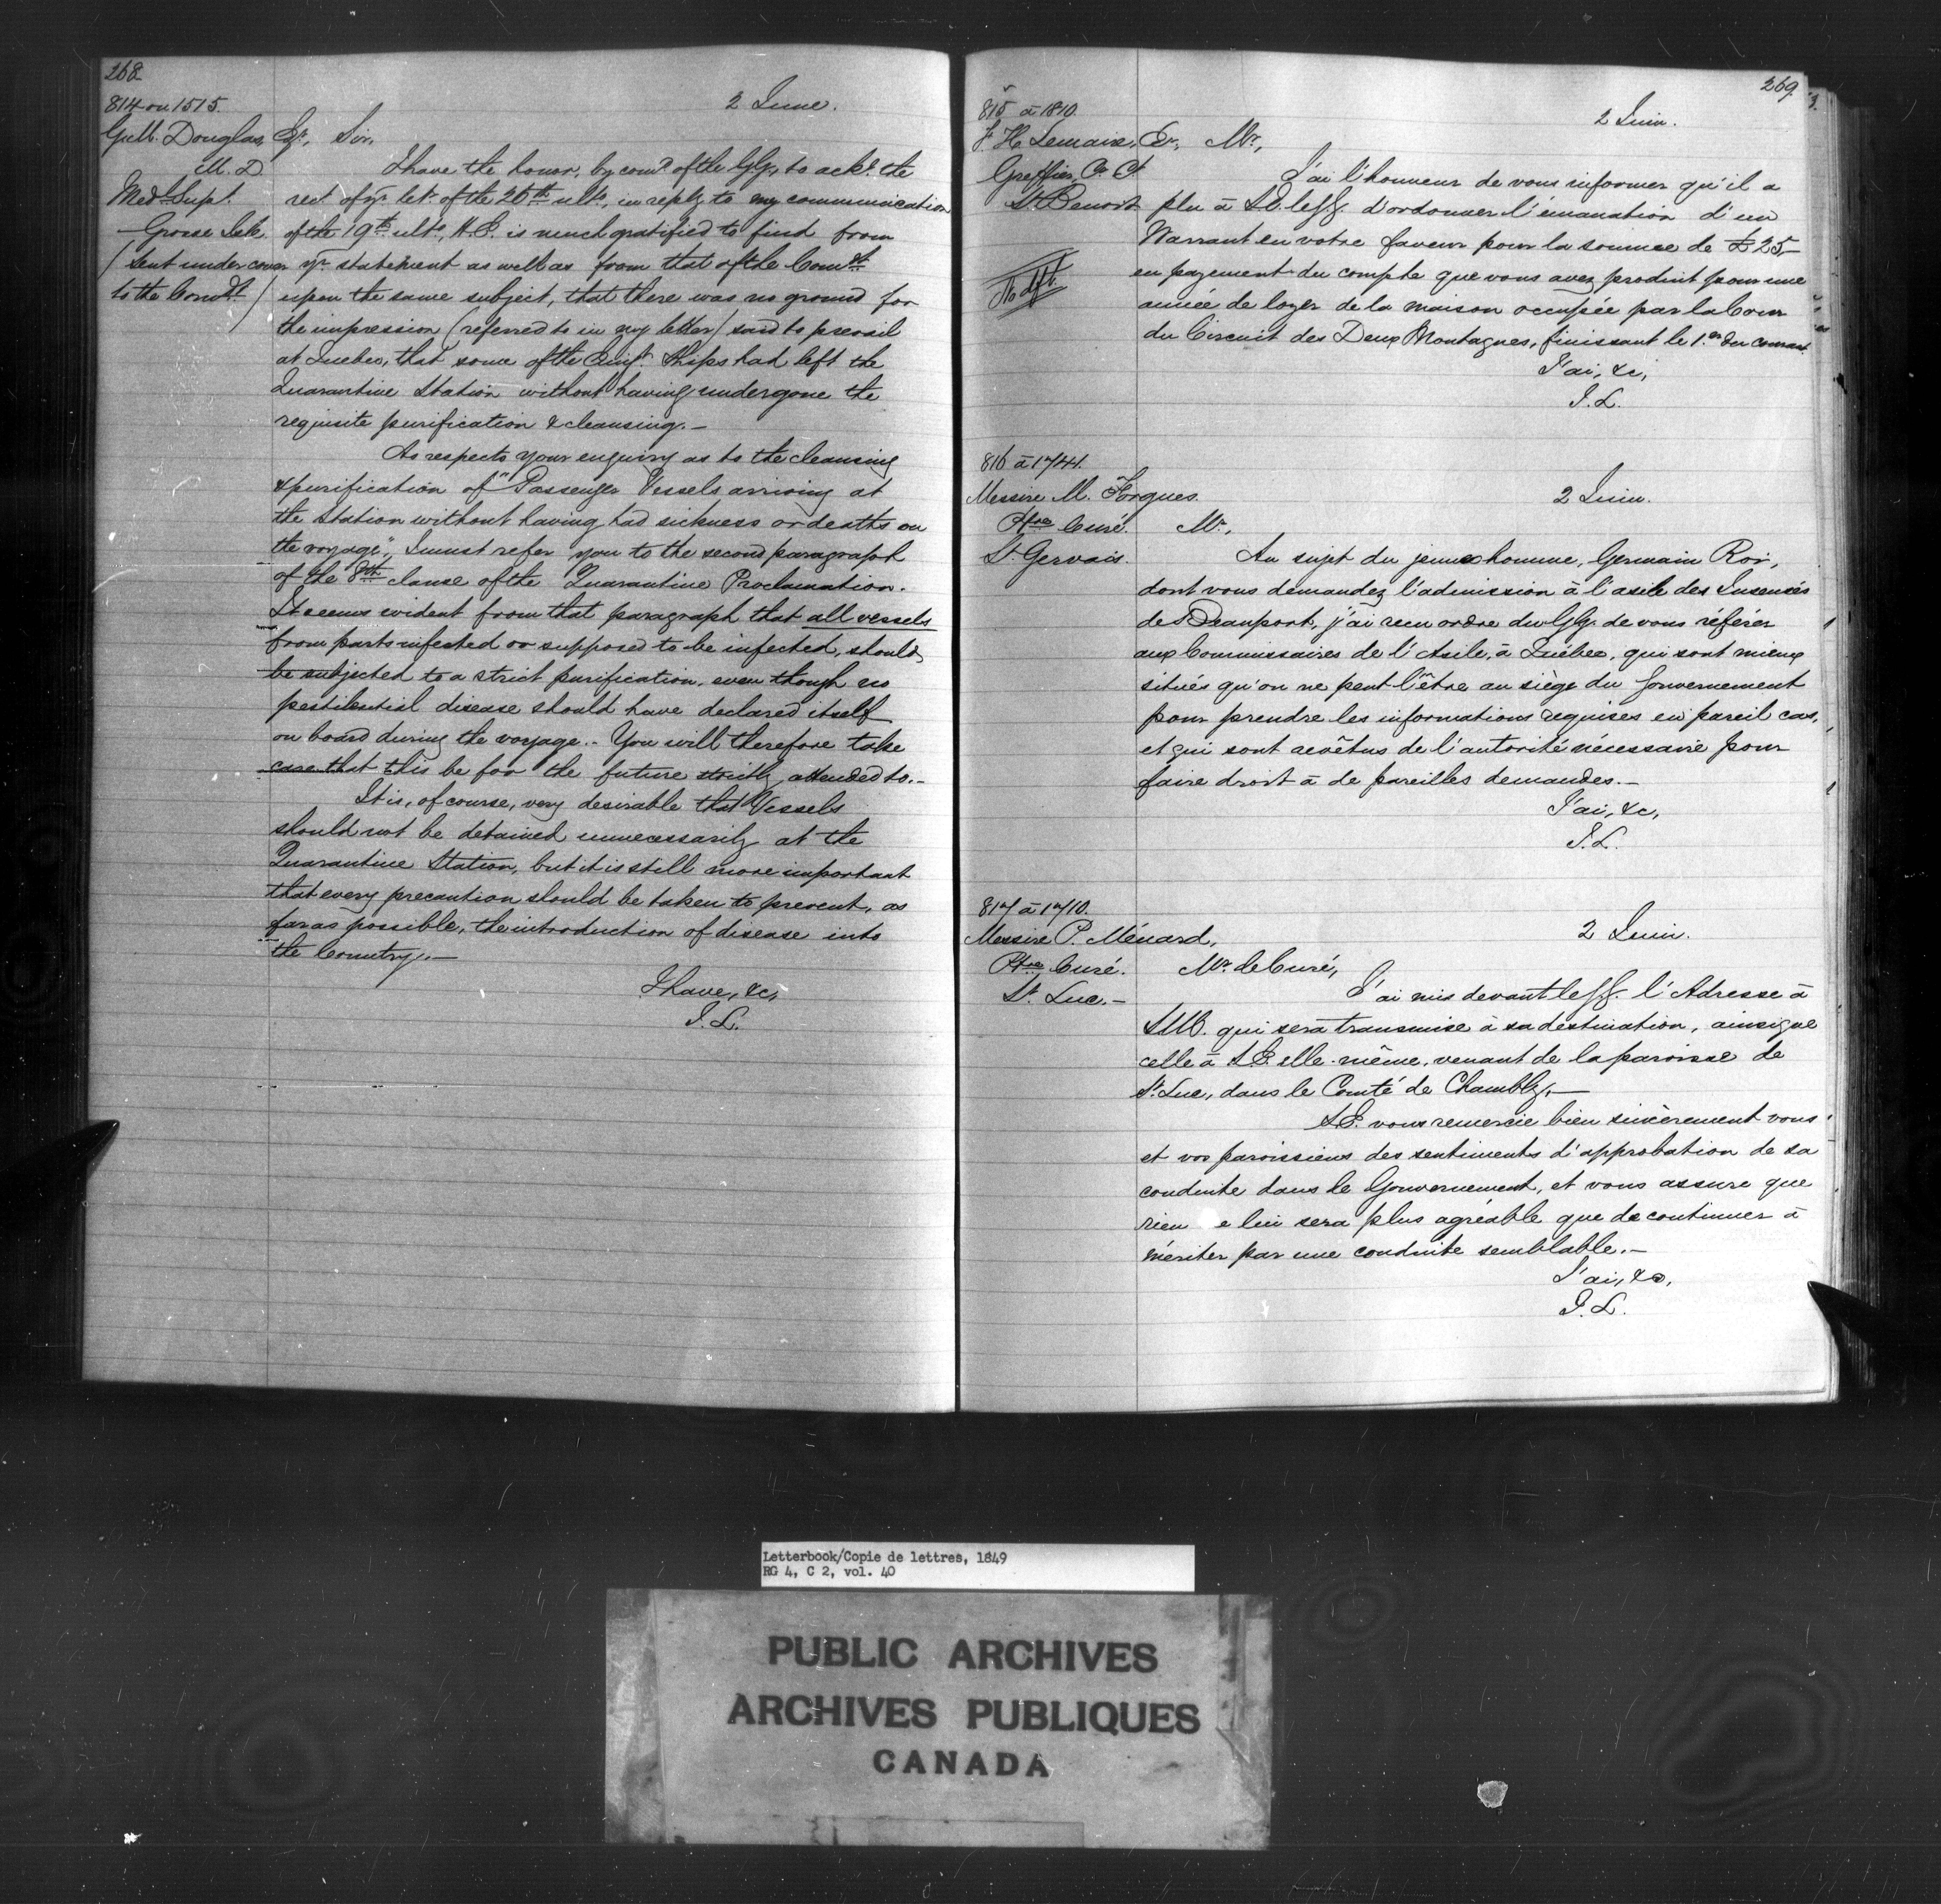 268
814 on 1515.
2 June.
Geo. M. Douglas, Esqr., Sir,
M.D
Medl. Supt.
Grosse Isle
(Sent under cover
to the Comdt.)
I have the honor, by comd. of the GG, to ackt. the
rect. of yr. letr. of the 26th ulto., in reply to my communication
of the 19th ulto., H.E. is much gratified to find from
yr. statement as well as from that of the Comdt.
upon the same subject, that there was no ground for
the impression (referred to in my letter) said to prevail
at Quebec, that some of the Emigt. Ships had left the
Quarantine Station without having undergone the
requisite purification & cleansing.—
As respects your enquiry as to the cleansing
& purification of "Passenger Vessels arriving at
the station without having had sickness or deaths on
the voyage", I must refer you to the second paragraph
of the 8th clause of the Quarantine Proclamation.
It seems evident from that paragraph that all vessels
from parts infected or supposed to be infected, should
be subjected to a strict purification, even though no
pestilential disease should have declared itself
on board during the voyage.- You will therefore take
care that this be for the future strictly attended to.-
It is, of course, very desirable that Vessels
should not be detained unnecessarily at the
Quarantine Station, but it is still more important
that every precaution should be taken to prevent, as
far as possible, the introduction of disease into
the Country.—
I have, &c,
J. L.
269
815 à 1810.
2 Juin.
F. H. Lemaire, Er, Mr,
Greffier, C. Ct.
St. Benoit
J'ai l'honneur de vous informer qu'il a
plu à S E le GG. d'ordonner l'émanation d'un
Warrant en votre faveur pour la somme de £25,
en payement du compte que vous avez produit pour une
année de loyer de la maison occupée par la Cour
du Circuit des Deux Montagnes, finissant le 1.er du courant.
J'ai, &c,
J. L.
816 à 1741.
Messire M. Forgues.
2 Juin.
Ptre Curé.
Mr,
St. Gervais.
Au sujet du jeune homme, Germain Roi,
dont vous demandez l'admission à l'asile des Insensés
de Beauport, j'ai reçu ordre du GG. de vous référer
aux Commissaires de l'Asile, à Québec, qui sont mieux
situés qu'on ne peut l'être au siège du Gouvernement
pour prendre les informations requises en pareil cas,
et qui sont revêtus de l'autorité nécessaire pour
faire droit à de pareilles demandes.—
J'ai, &c,
J. L.
817 à 1710.
Messire P. Ménard,
2 Juin.
Ptre Curé.
Mr. le Curé,
St. Luc.—
J'ai mis devant le GG. l'Adresse à
S.M. qui sera transmise à sa destination, ainsi que
celle à S.E. elle-même, venant de la paroisse de
St. Luc, dans le Comté de Chambly.—
S.E. vous remercie bien sincèrement vous
et vos paroissiens des sentiments d'approbation de sa
conduite dans le Gouvernement, et vous assure que
rien e lui sera plus agréable que de continuer à
mériter par une conduite semblable.—
J'ai, &c,
J. L.
Letterbook/Copie de lettres, 1849
RG 4, C 2, vol. 40
PUBLIC ARCHIVES
ARCHIVES PUBLIQUES
CANADA